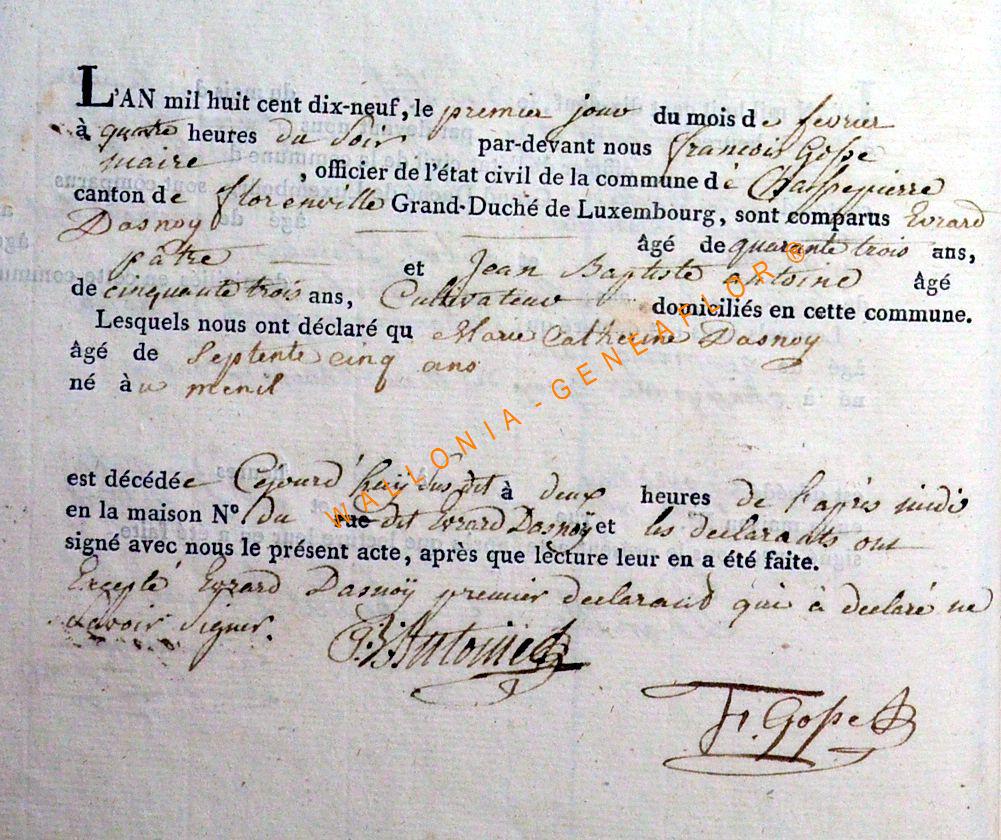 L'AN mil huit cent dix-neuf, le premier jour du mois de fevrier
à quatre heures du Soir par-devant nous francois Gosse
maire , officier de l'état civil de la commune de Chassepierre
canton de florenville Grand-Duché de Luxembourg, sont comparus Evrard
Dasnoy âgé de quarante trois ans,
pâtre et Jean Baptiste antoine âgé
de cinquante trois ans, Cultivateur domiciliés en cette commune.
Lesquels nous ont déclaré qu Marie Catherine Dasnoy
âgé de Septente cinq ans
né à u menil
est décédée Cejourd'huÿ susdit à deux heures de l'après midi
en la maison N° du rue dit Evrard Dasnoÿ et les declarants ont
signé avec nous le présent acte, après que lecture leur en a été faite.
Excepté Evrard Dasnoÿ premier declarant qui a declaré ne
savoir signer. J.B. Antoine
F. Gosse
WALLONIA - GENEAFLOR ®